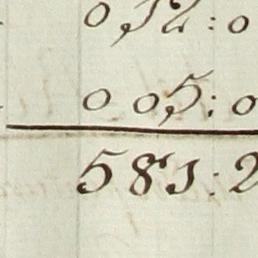 0 52:0
0 05:0
581:2